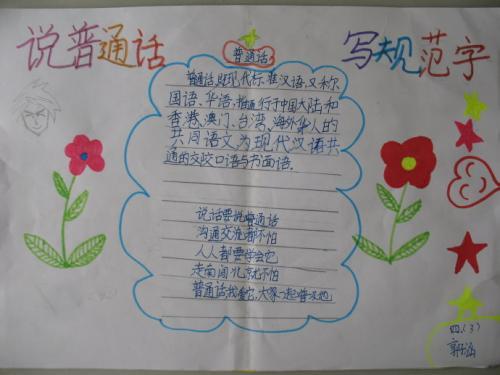 说普通话
写规范字
普通话
普通话,既现代标准汉语,又称
国语、华语,推通行于中国大陆和
香港、澳门、台湾、海外华人的
共同语文,为现代汉语共
通的交际口语与书面语.
说话要说普通话
沟通交流都不怕
人人都要学会它
走南闯北就不怕
普通话,我爱它,大家一起普及他
四.(3)